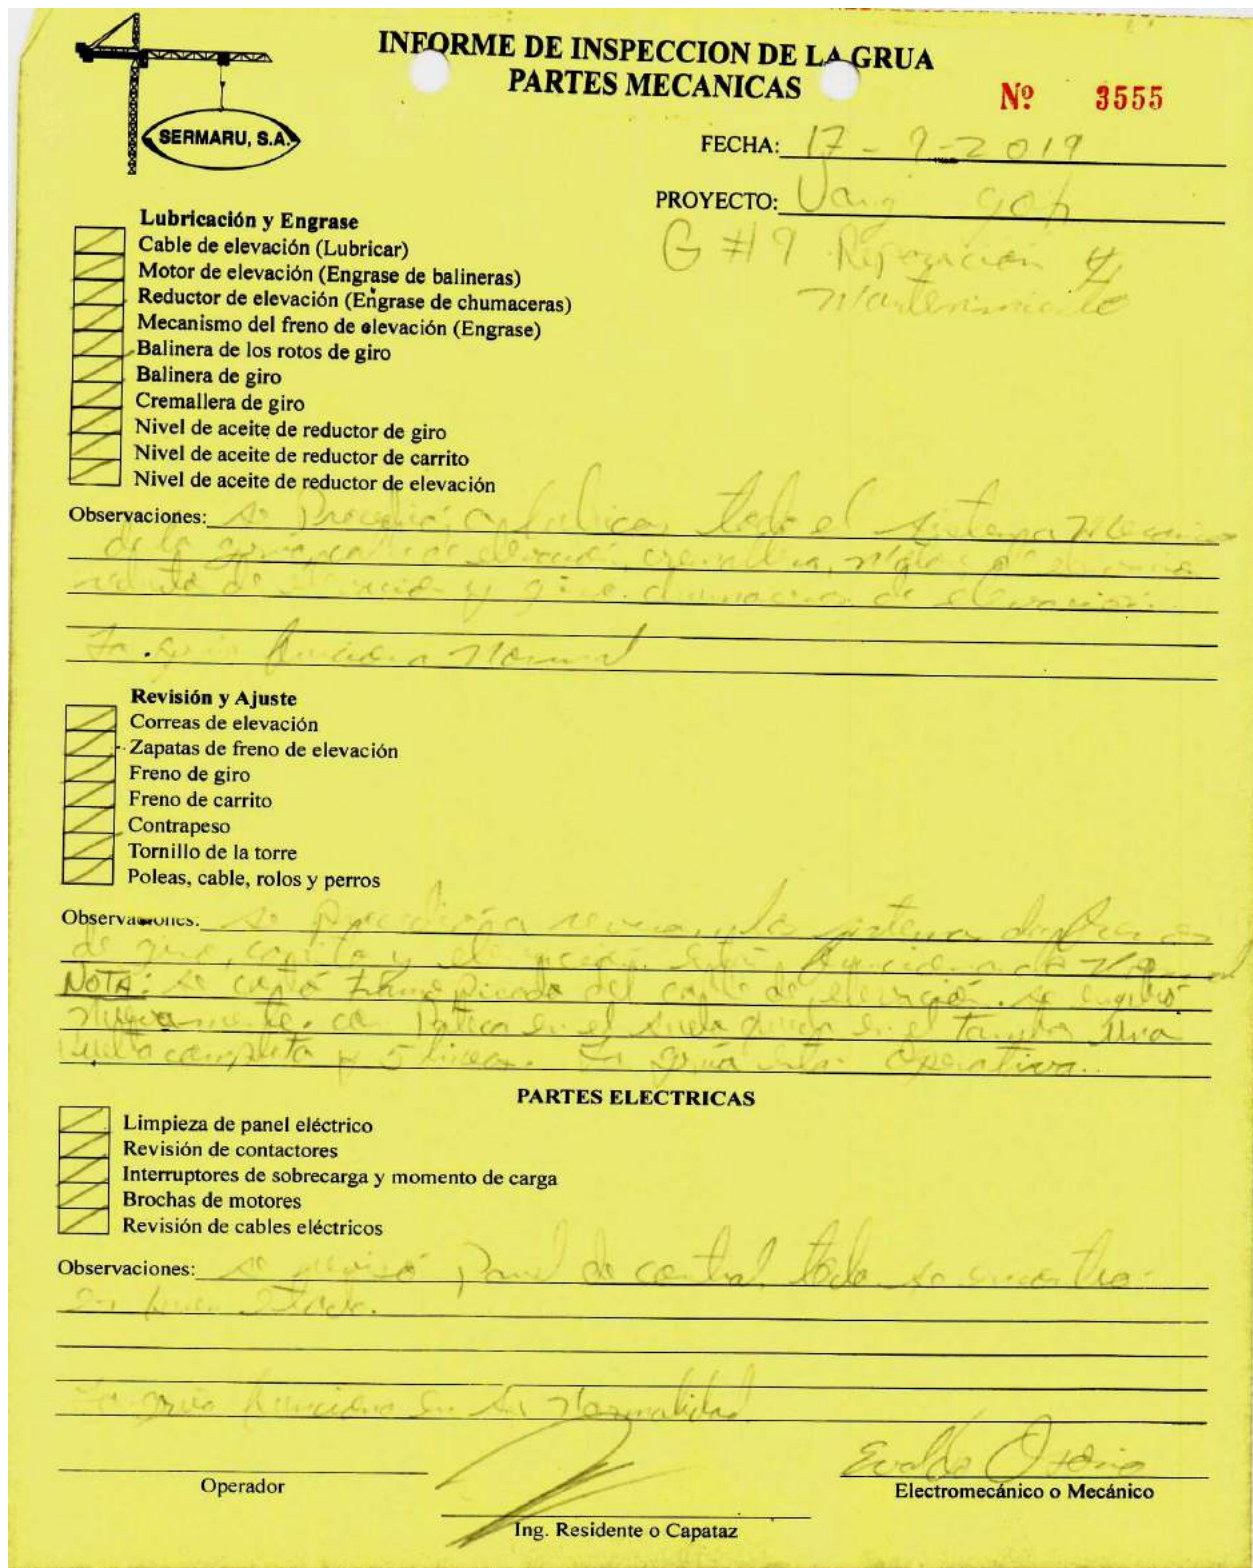 INFORME DE INSPECCION DE LA GRUA
PARTES MECANICAS
Nº 3555
SERMARU, S.A.
FECHA: 17-9-2019
PROYECTO:
G #9 Reparación
Mantenimiento
Lubricación y Engrase
Cable de elevación (Lubricar)
Motor de elevación (Engrase de balineras)
Reductor de elevación (Engrase de chumaceras)
Mecanismo del freno de elevación (Engrase)
Balinera de los rotos de giro
Balinera de giro
Cremallera de giro
Nivel de aceite de reductor de giro
Nivel de aceite de reductor de carrito
Nivel de aceite de reductor de elevación
Observaciones: se Procedió a lubricar todo el sistema
de la grúa, cable de elevación, cremallera,
de elevación y giro. chumaceras de elevación.
La grúa funciona Normal
Revisión y Ajuste
Correas de elevación
Zapatas de freno de elevación
Freno de giro
Freno de carrito
Contrapeso
Tornillo de la torre
Poleas, cable, rolos y perros
Observaciones: se procedió a los sistema de
de giro, carrito y elevación. están funcionando
NOTA: se cortó del cable de elevación. se
nuevamente. en el suelo queda en el tambor una
vuelta completa y 5 lineas. La grúa está Operativa.
PARTES ELECTRICAS
Limpieza de panel eléctrico
Revisión de contactores
Interruptores de sobrecarga y momento de carga
Brochas de motores
Revisión de cables eléctricos
Observaciones: se revisó Panel de control, todo se encontra
En buen Estado.
La grúa funciona en su Normalidad
Operador
Electromecánico o Mecánico
Ing. Residente o Capataz